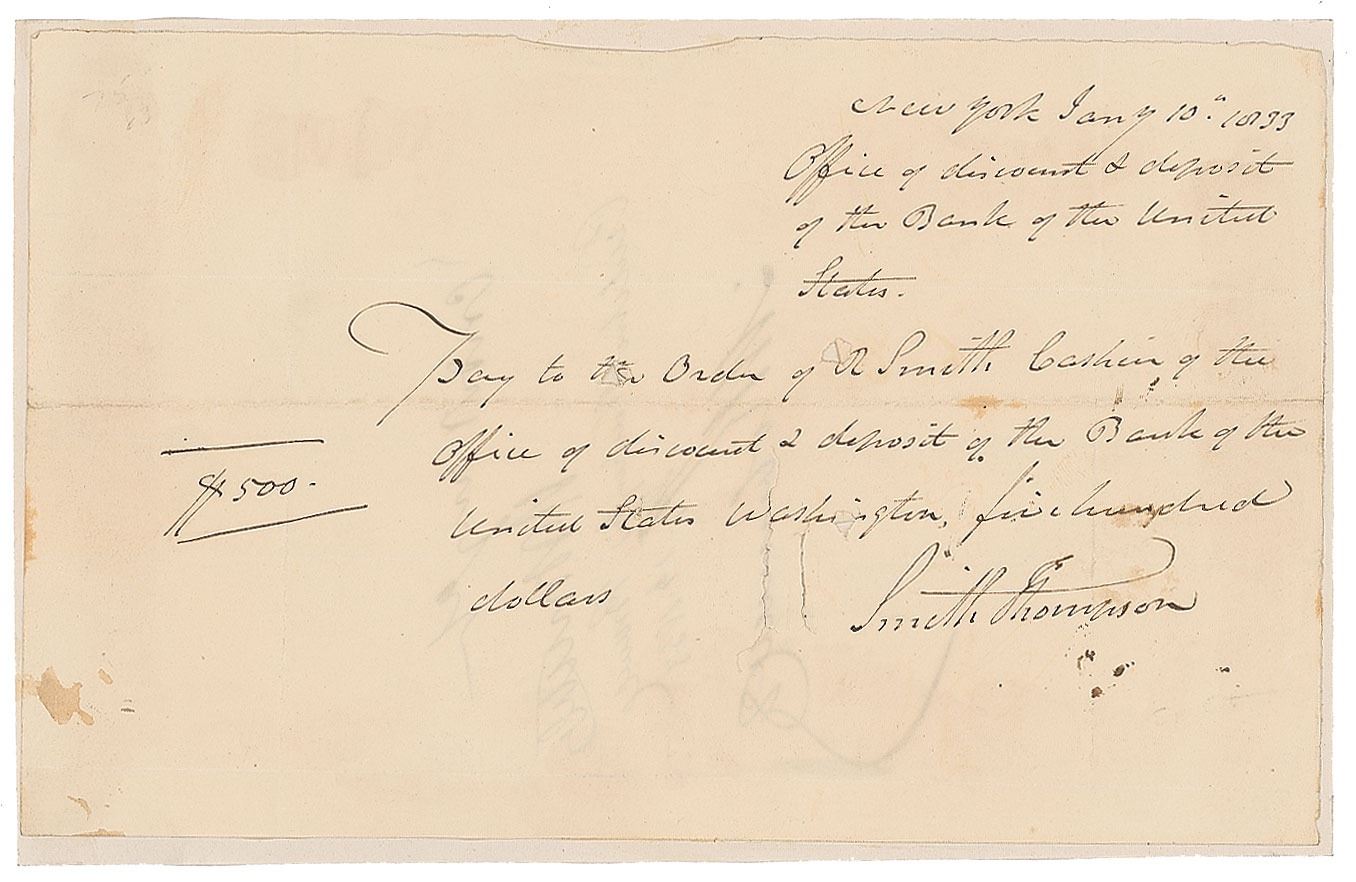 New York Jany 10th 1833
Office of discount & deposit
of the Bank of the United
States.
Pay to the Order of R Smith Cashier of the
$500.
Office of discount & deposit of the Bank of the
United States Washington, five hundred
dollars
Smith Thompson